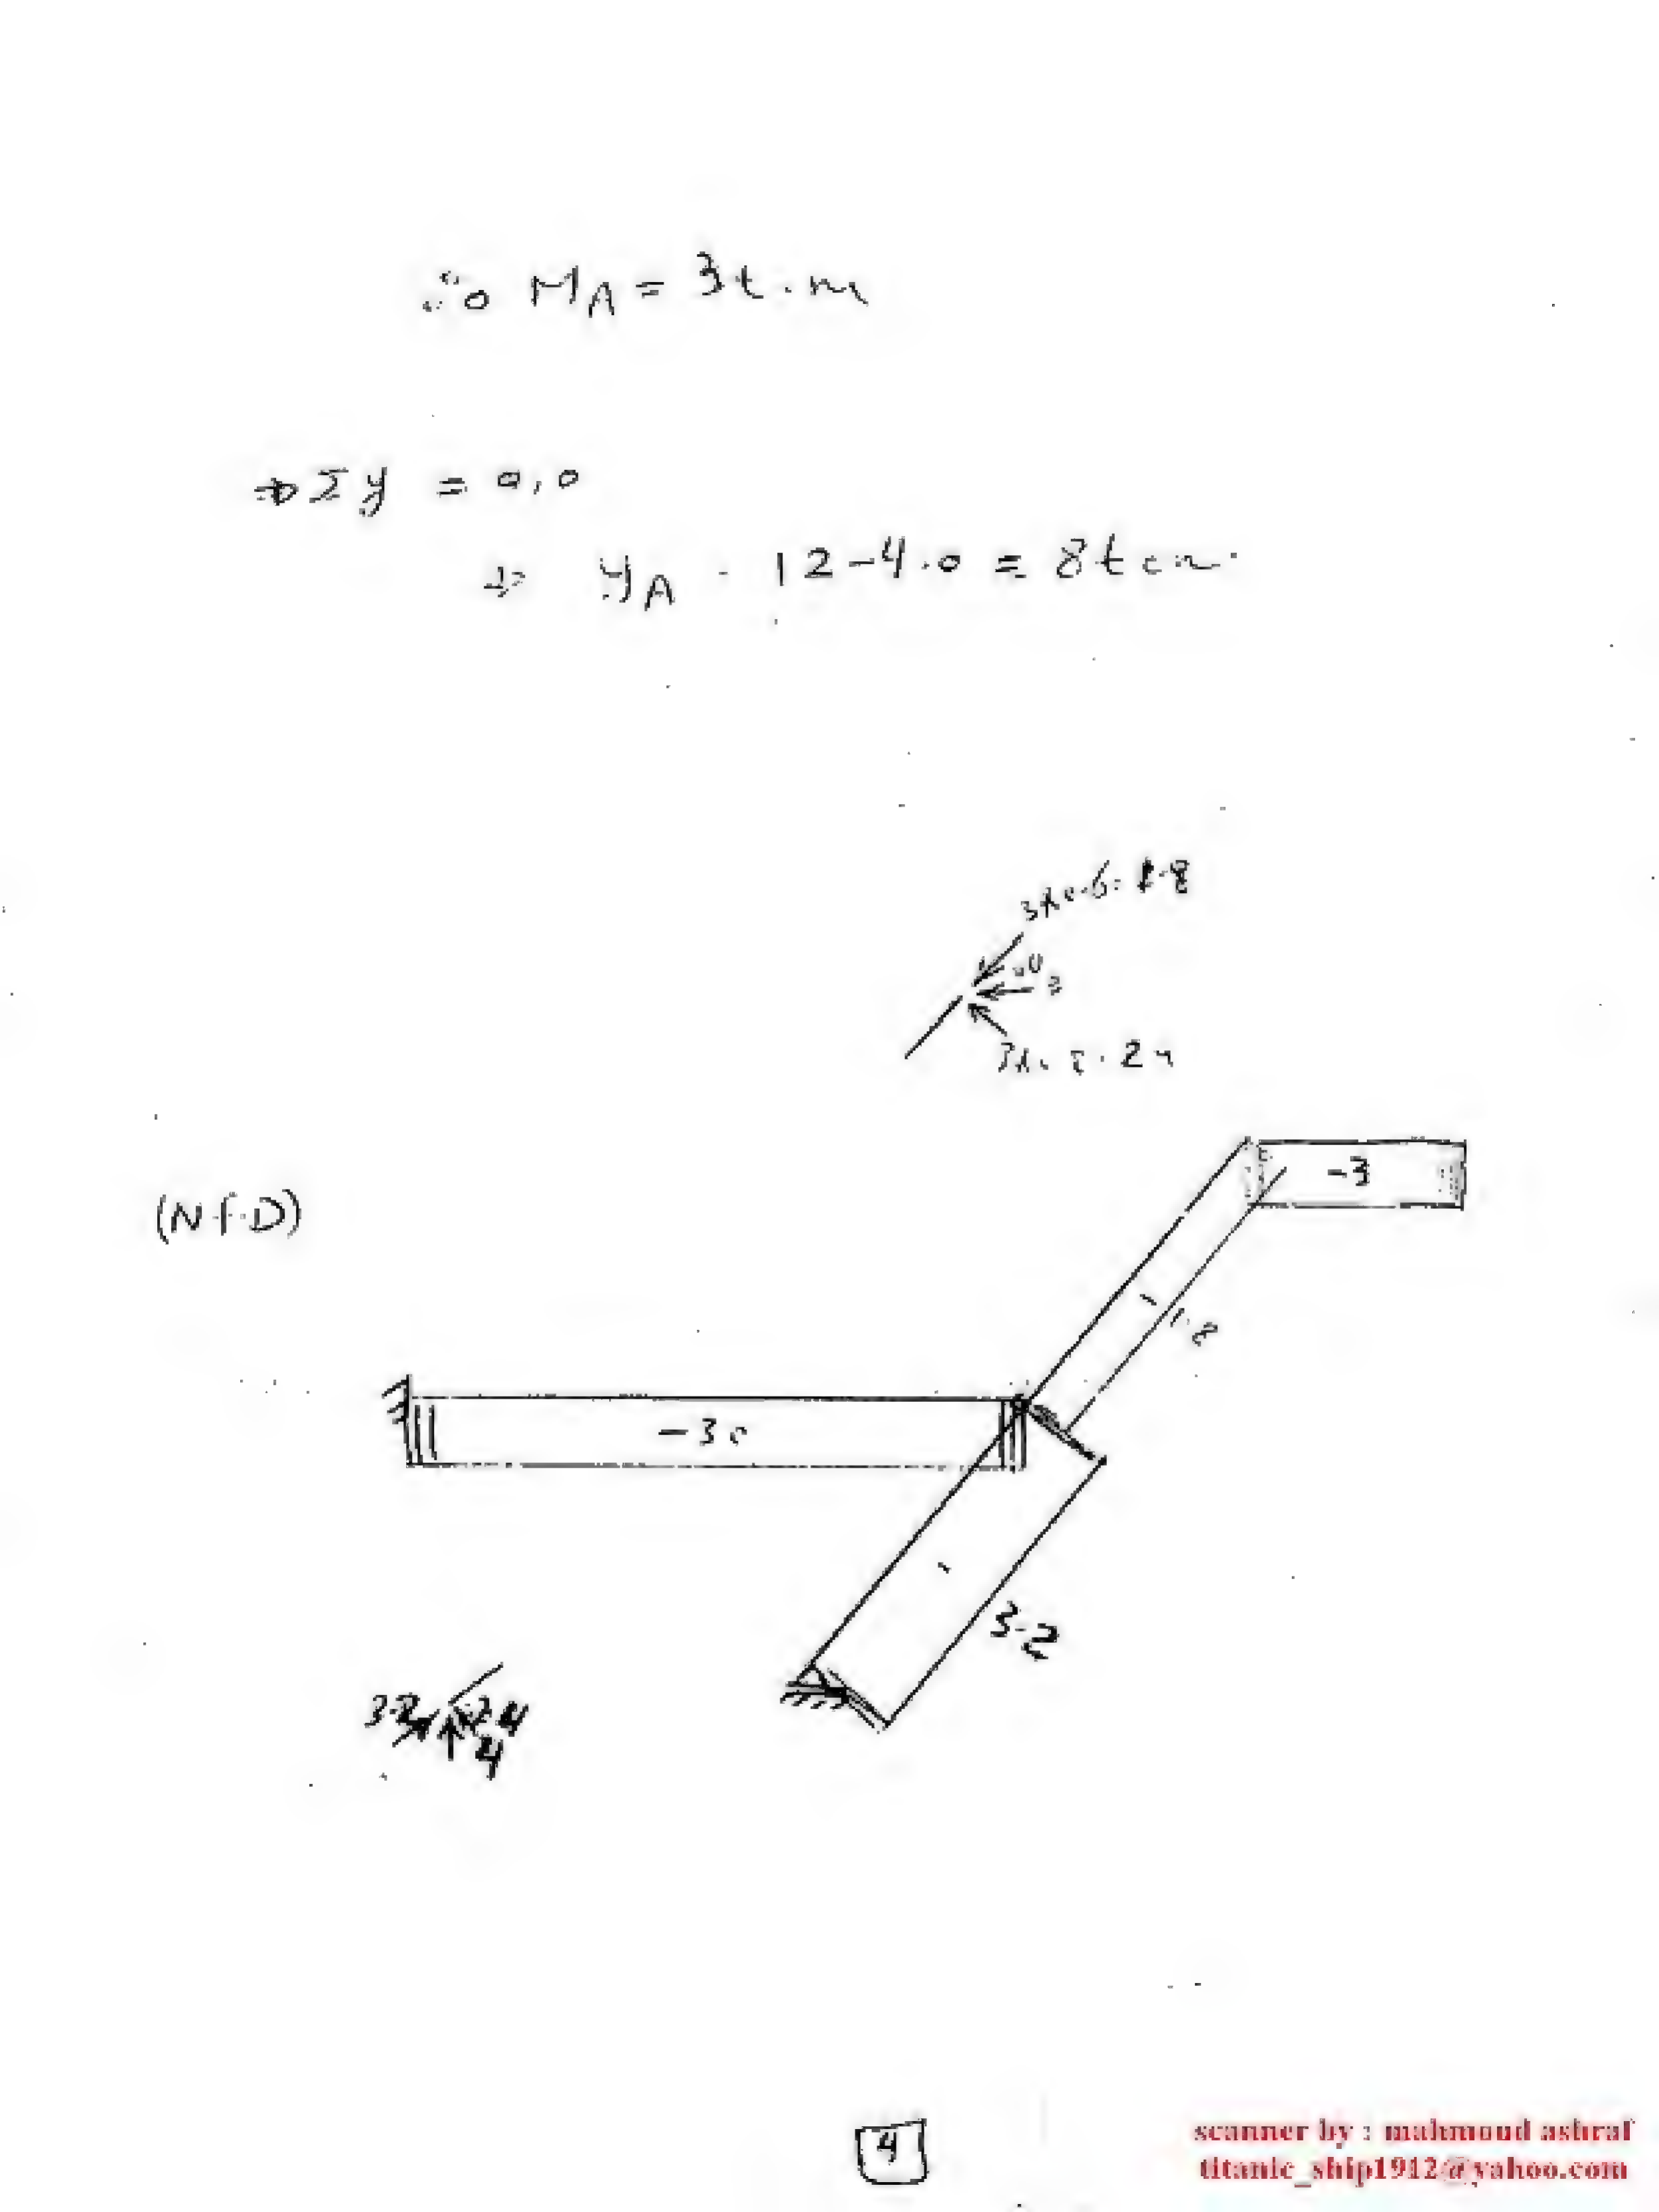 ∴ M_A = 3t.m
⇒ Σy = 0,0
⇒ y_A = 12-4.0 = 8ton
3x0.6=1.8
3
(N.F.D)
-3
-
1.8
-3.0
-
3.2
3.2
2.4
4
4
scanner by : mahmoud ashraf
titanic_ship1912@yahoo.com